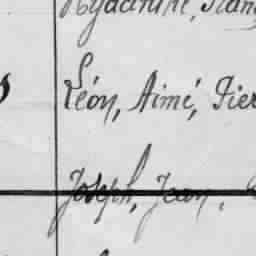 Hyacinthe, Fran
Léon, Aimé, Pier
Joseph, Jean,